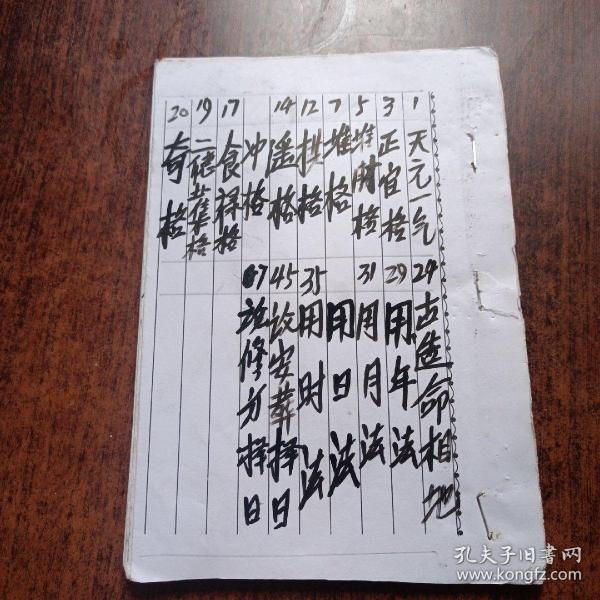 1 天元一气
3 正官格
5 堆财格
7 堆格
12 拱格
14 遥格
冲格
17 食禄格
19 二德公集格
20 奇格
24 古造命相地
29 用年法
31 用月法
用日法
35 用时法
45 设安葬择日
67 论修方择日
孔夫子旧书网
www.kongfz.com